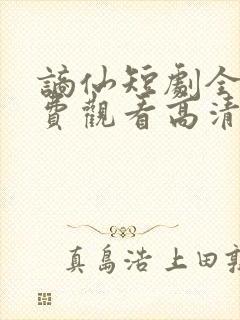 謫仙短劇全
費觀看高清
真島浩 上田敦